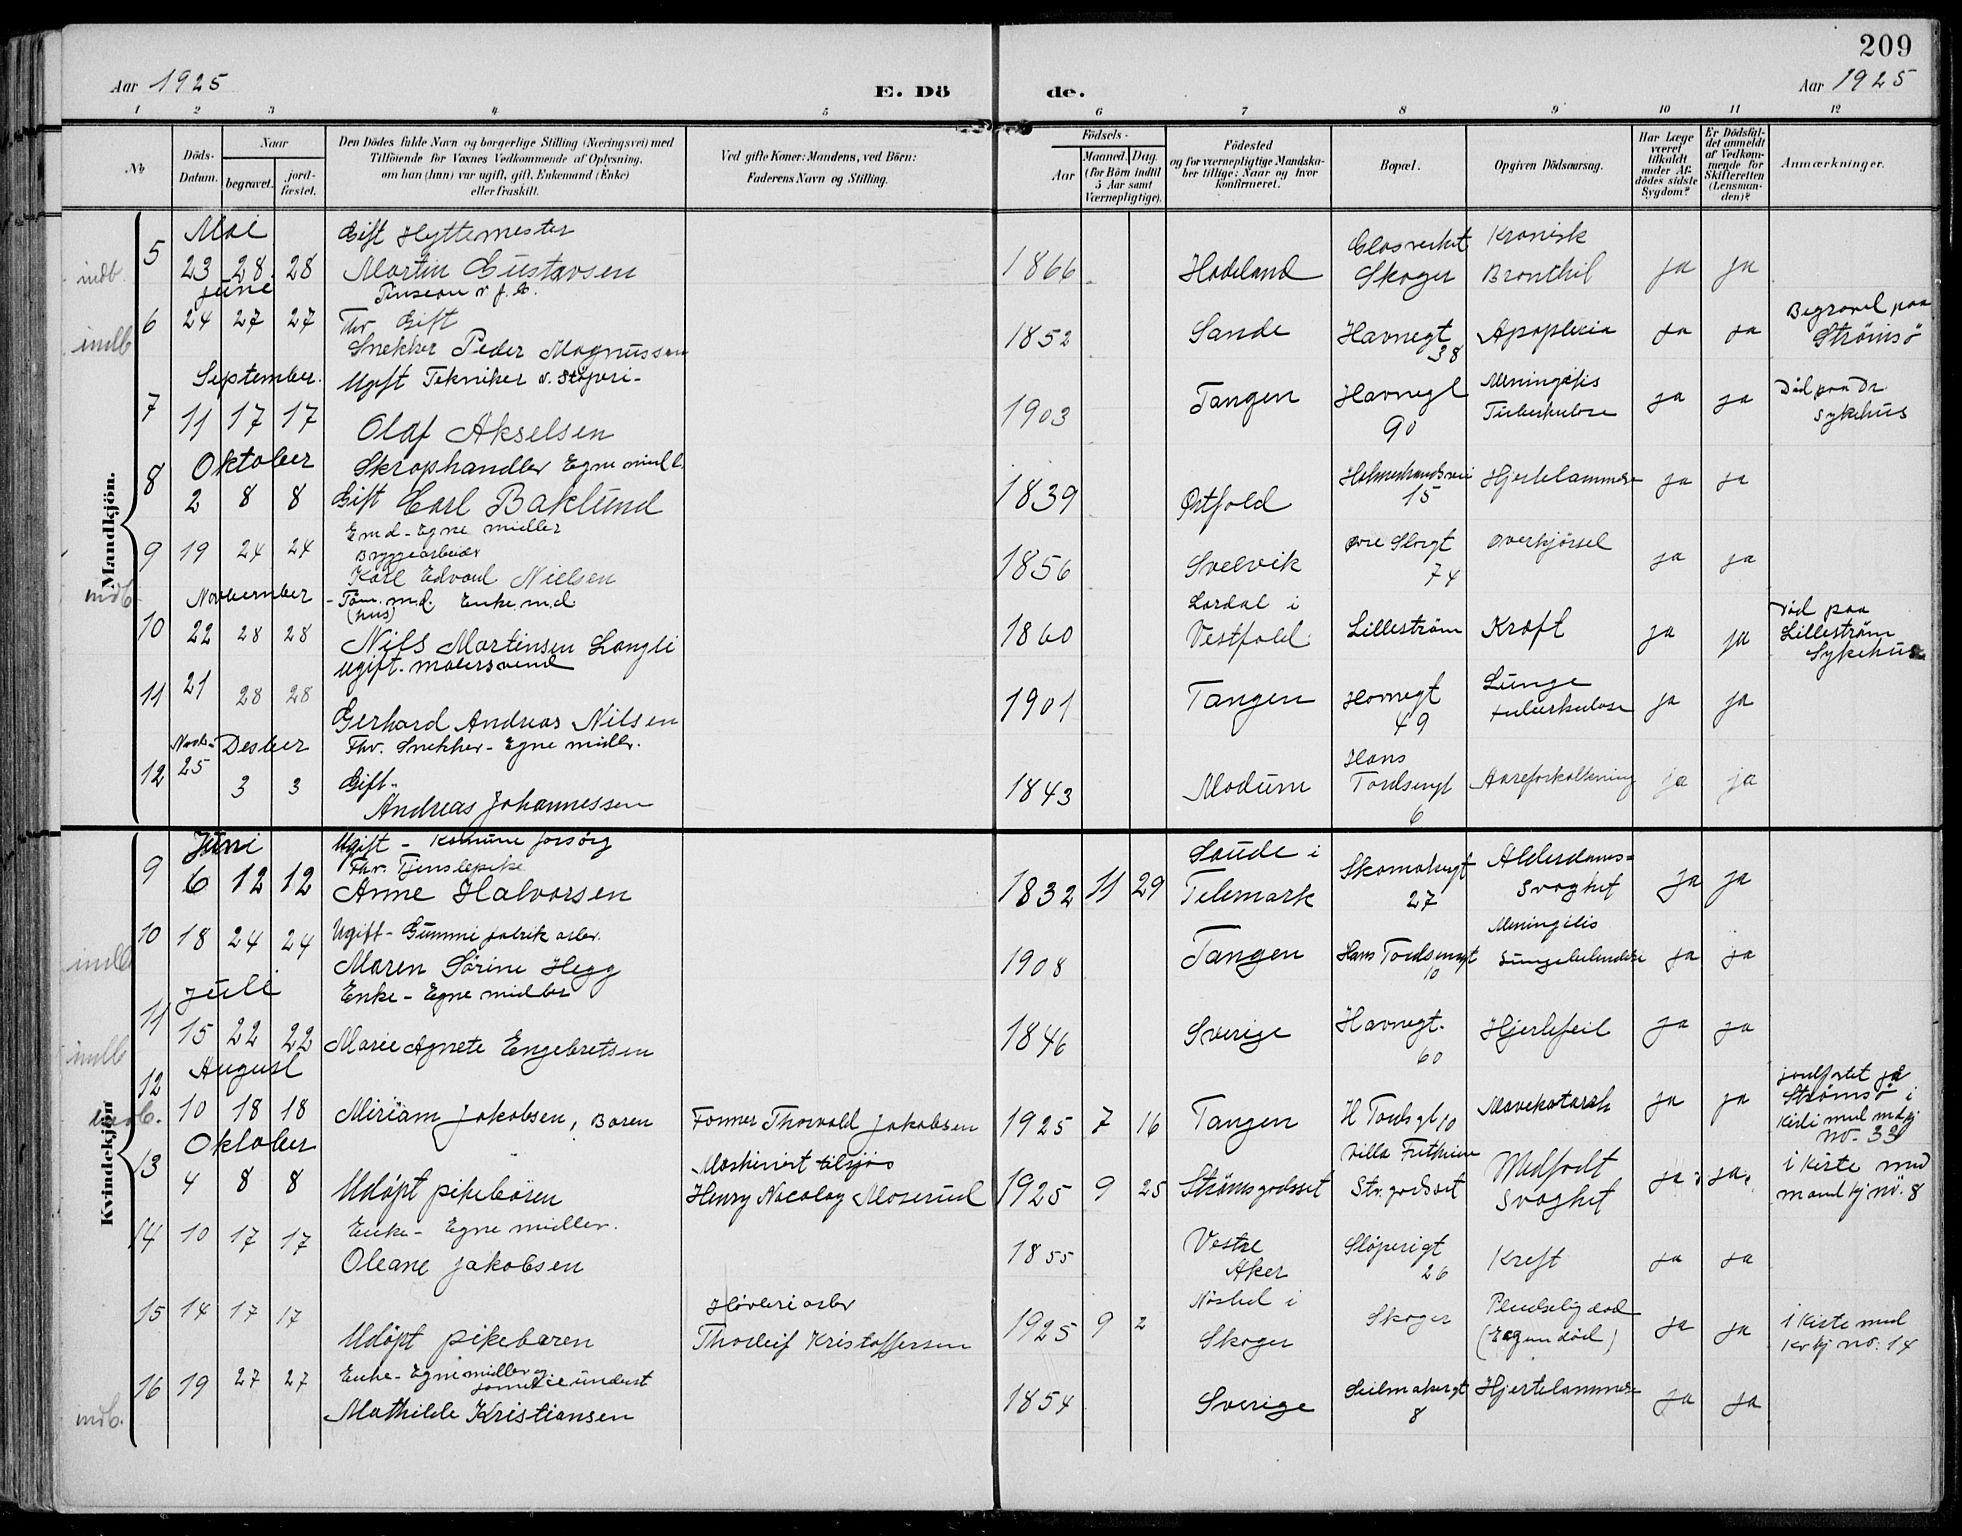 209
Aar 1925
E. Dö de.
Aar 1925
1 2 3 4 5 6 7 8 9 10 11 12
No
Döds-Datum.
Naar
begravet.
jord-fæstet.
Den Dödes fulde Navn og borgerlige Stilling (Næringsvei) med
Tilföiende for Voxnes Vedkommende af Oplysning,
om han (hun) var ugift, gift, Enkemand (Enke)
eller fraskilt.
Ved gifte Koner: Mandens, ved Börn:
Faderens Navn og Stilling.
Födsels-
Aar
Maaned. Dag.
(for Börn indtil
5 Aar samt
Værnepligtige).
Födested
og for værnepligtige Mandska-
ber tillige: Naar og hvor
konfirmeret.
Bopæl.
Opgiven Dödsaarsag.
Har Læge
været
tilkaldt
under Af-
dödes sidste
Sygdom?
Er Dödsfal-
det anmeldt
af Vedkom-
mende for
Skifteretten
(Lensman-
den)?
Anmærkninger.
Mandkjön.
Mai Gift Hyttemester Glasverket Kronisk
indb. 5 23 28 28 Martin Gustavsen 1866 Hadeland Skoger Bronkit ja ja
June
indb 6 24 27 27 Fhv Gift
Snekker Peder Magnussen 1852 Sande Havnegt 38 Apoplexia ja ja Begravet paa Strømsø
September Ugift Tekniker
7 11 17 17 Olaf Akselsen 1903 Tangen Havnegt 90 Meningitis Tuberkulose ja ja Død paa Dr. sykehus
Oktober Skraphandler Egne midl
8 2 8 8 Gift Carl Baklund 1839 Østfold Holmestrandsvei 15 Hjertelammelse ja ja
Emd - Egne midler
Bryggearbeider
9 19 24 24 Karl Edvard Nielsen 1856 Svelvik øvre Storgt 74 Overkjørsel ja ja
indb. November Tøm. m.d. Enkem.d.
(hus)
10 22 28 28 Nils Martinsen Langli 1860 Lardal i Vestfold Lillestrøm Kræft ja ja Død paa Lillestrøm Sykehus
ugift. malersvend
11 21 28 28 Gerhard Andreas Nilsen 1901 Tangen Havnegt 49 Lunge tuberkulose ja ja
Desber Fhv. Snekker - Egne midlr.
12 25 3 3 Gift
Andreas Johannessen 1843 Modum Hans Tordsengt 6 Aareforkalkning ja ja
Kvindekjön
Juni Ugift - Komune forsørg
Fhv. Tjenstepike
9 6 12 12 Anne Halvorsen 1832 11 29 Saude i Telemark Skomakergt 27 Alderdoms= svaghet ja ja
indb 10 18 24 24 Ugift - Gummi fabrik arbr.
Maren Sørine Hegg 1908 Tangen Hans Tordsengt 10 Meningitis ja ja
Juli Enke - Egne midler
indb 11 15 22 22 Marie Agnete Engebretsen 1846 Sverige Havnegt. 60 Hjertefeil ja ja
August
indb. 12 10 18 18 Miriam Jakobsen, Baren Former Thorvald Jakobsen 1925 7 16 Tangen H Tordsgt 10 Mavekatarrh ja ja jordfæstet på Strømsø i kiste med mdkj no. 33
Oktober
13 4 8 8 Udøpt pikebaren Maskinist tilsjøs
Henry Nocolay Moserud 1925 9 25 Strømsgodset Villa Str.godset Medfødt svaghet ja ja i kiste med mandkj no. 8
Enke - Egne midler.
14 10 17 17 Oleane Jakobsen 1855 Vestre Aker Sløperigt 26 Kreft ja ja
15 14 17 17 Udøpt pikebaren Høvleri arbr
Thorleif Kristoffersen 1925 9 2 i Skoger Skoger Pludselig død ja ja i kiste med kvkj no. 14
Enke - Egne midler og
indb. 16 19 27 27 Mathilde Kristiansen 1854 Sverige Seilmakergt 8 Hjertelammelse ja ja